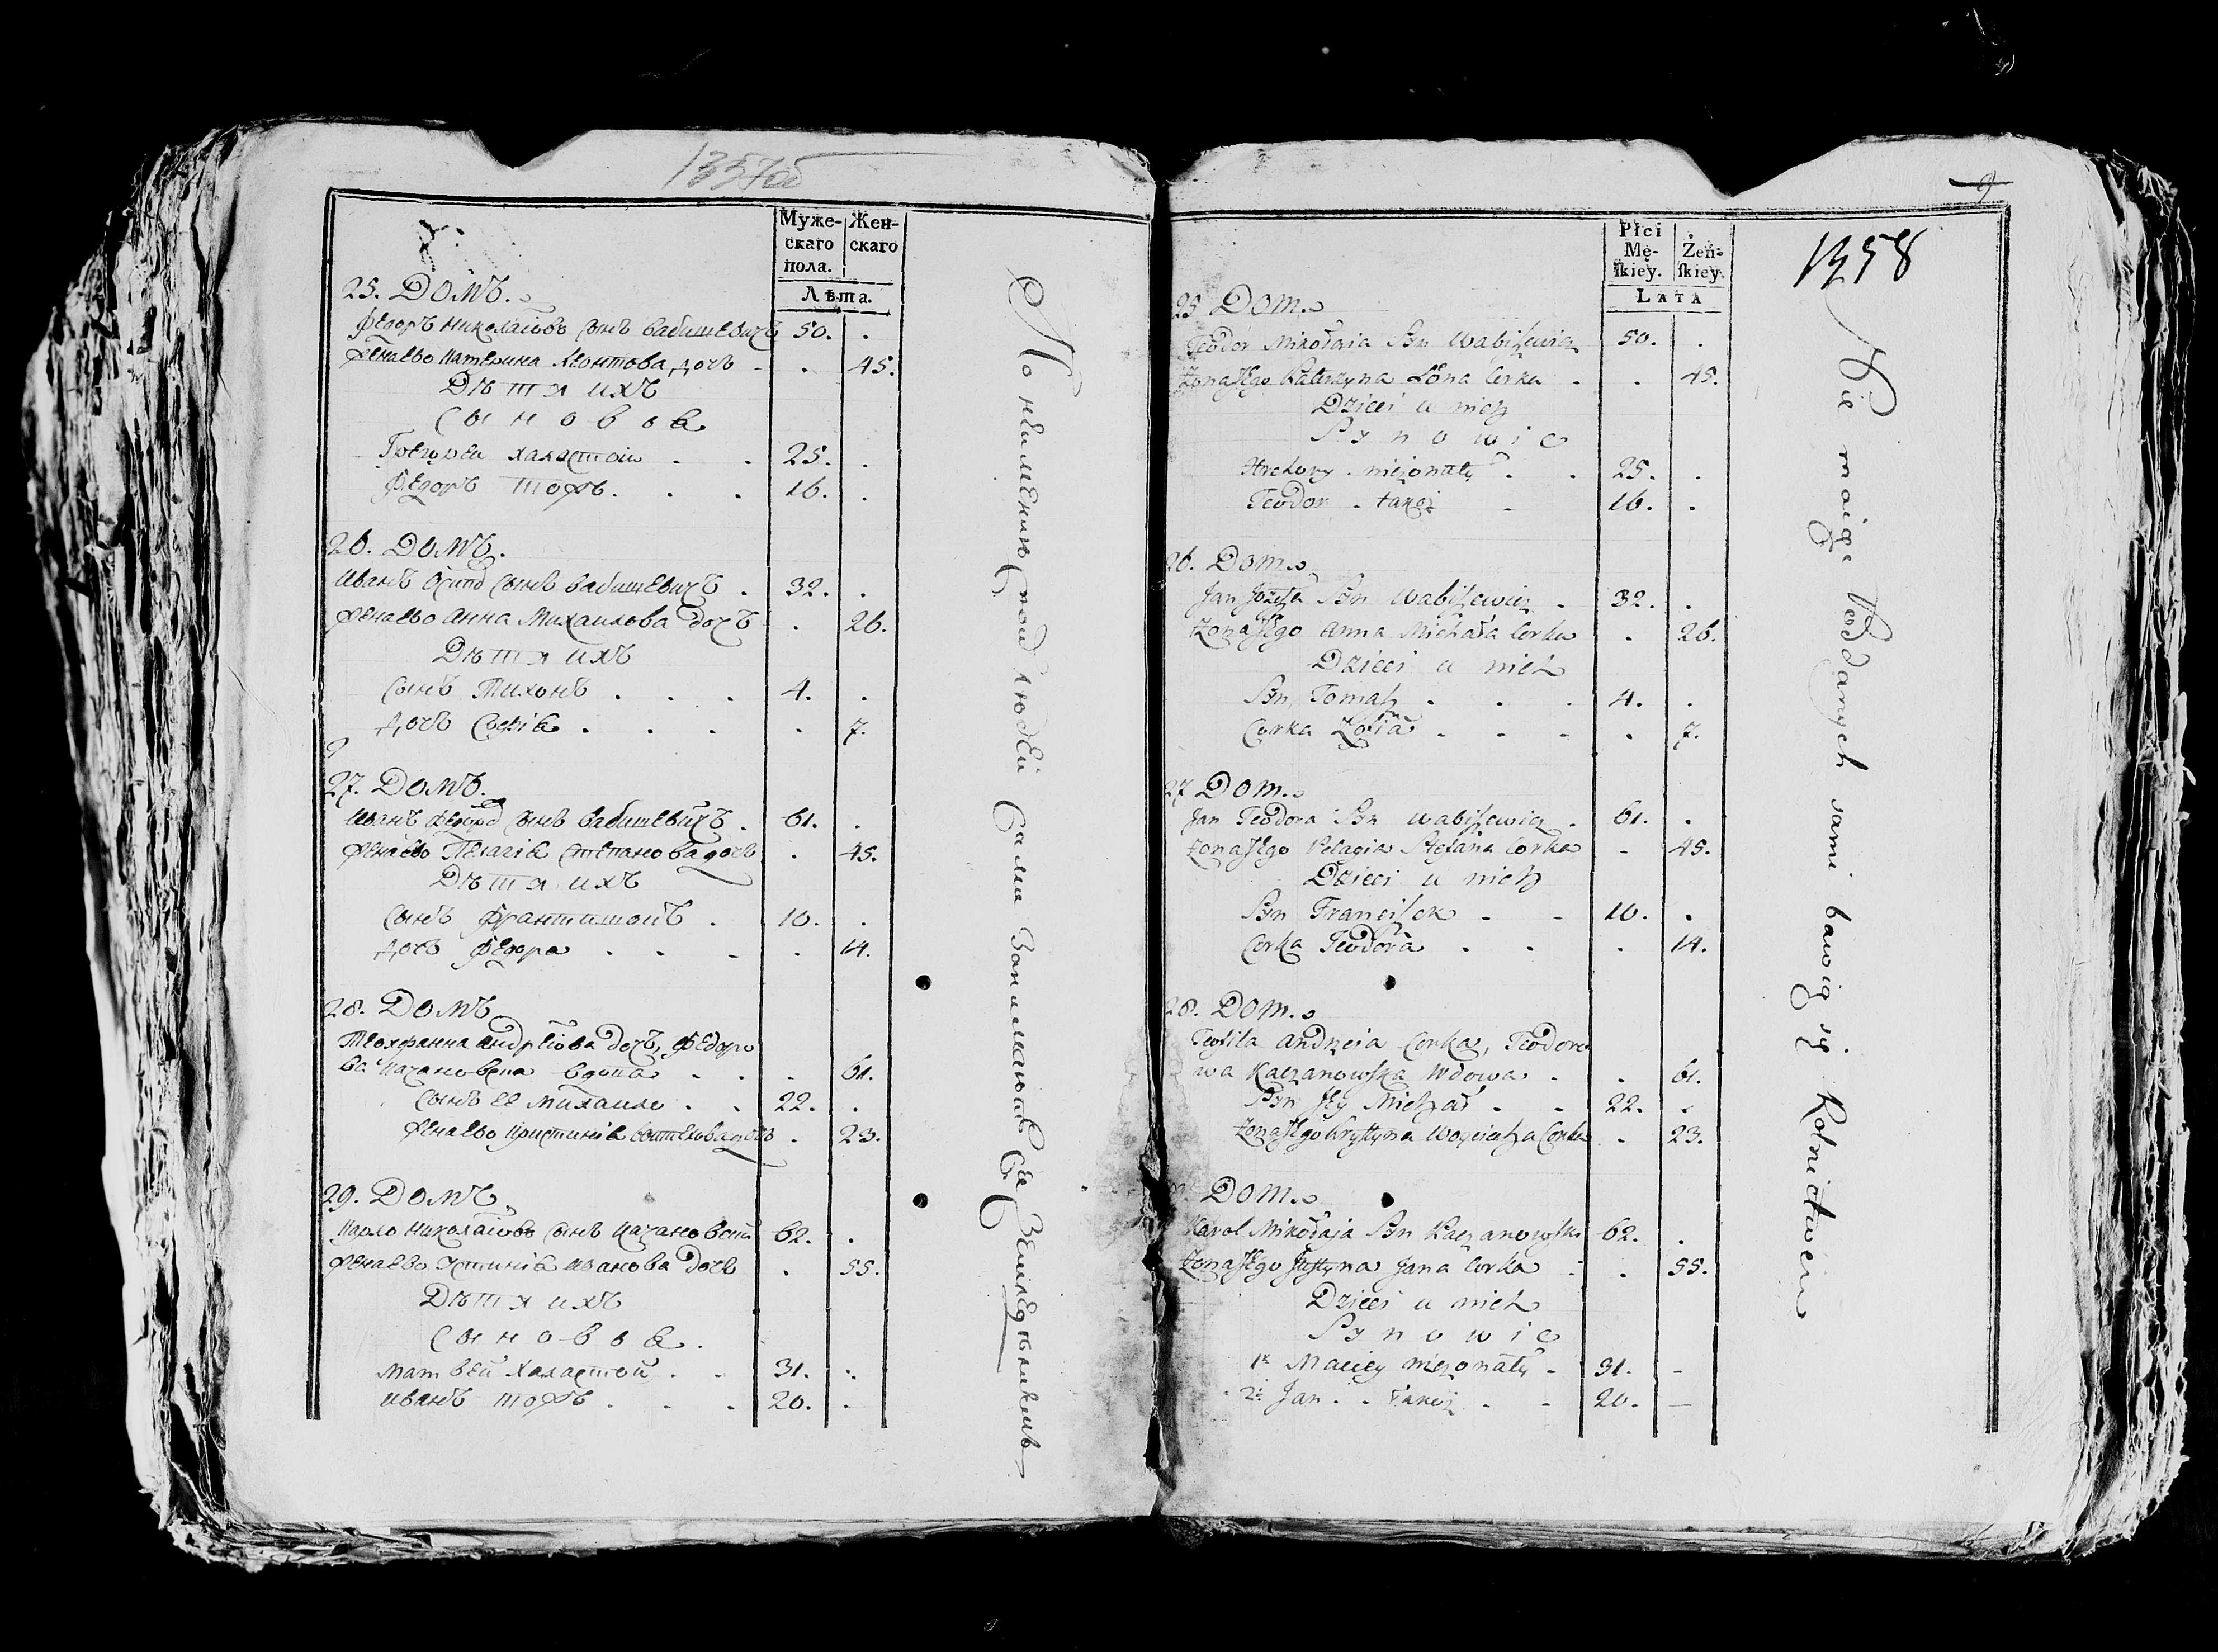 1357об
Муже-
скаго
пола.
Жен-
скаго
Лѣта.
25. Домъ.
Федоръ Николаювъ сынъ Вабишевичъ 50. .
Жена ево Катерина Леонтова дочь - . 45.
Дѣтя ихъ
Сыновья
Грегорей халастой . . 25. .
Федоръ тожъ . . . 16. .
26. Домъ.
Иванъ Осипо сынъ Вабишевичъ . 32. .
Жена ево Анна Михаилова дочь . 26.
Дѣтя ихъ
Сынъ Тихонъ . . . 4. .
Дочь Софія . . . . 7.
27. Домъ.
Иванъ Федоро сынъ Вабишевичъ . 61. .
Жена ево Пелагія Степанова дочь . 45.
Дѣтя ихъ
Сынъ Францишокъ . 10. .
Дочь Федора . . . . 14.
28. Домъ
Теохфанна Андреіова дочь, Федоро
ва Качановска вдова . . . 61.
Сынъ ее Михаило . . 22. .
Жена ево Кристинія дочь . 23.
29. Домъ.
Карло Николаювъ сынъ Качановски 62. .
Жена ево Юстинія Иванова дочь . 55.
Дѣтя ихъ
Сыновья.
Матвей халастой . . 31. .
Иванъ тожъ . . . 20. .
По неимению под людей сами занимаются земледелиемъ
9
1358
Płci
Mę-
ſkiey.
Żeń-
ſkiey
LATA
25 Dom.
Teodor Mikołaia Syn Wabiſzewicz 50. .
Żona Jego Katerzyna Leona Corka . . 45.
Dzieci u nich
Synowie
Hrehory . nieżonaty . . 25. .
Teodor . takoż . 16. .
26. Dom.
Jan Jozefa Syn Wabiſzewicz . 32. .
Żona Jego Anna Michała Corka . 26.
Dzieci u nich
Syn Tomaſz . . . 4. .
Corka Zofia . . - . 7.
27 Dom.
Jan Teodora Syn Wabiſzewicz . 61. .
Żona Jego Pelagia Stefana Corka - 45.
Dzieci u nich
Syn Franciſzek . - 10. .
Corka Teodora . . . 14.
28. Dom.
Teofila Andrzeia Corka, Teodoro
wa Kaczanowſka Wdowa . . 61.
Syn Jey Michał . . 22. .
Żona Jego Kryſtyna Woyciecha Corka . 23.
Dom.
Karol Mikołaja Syn Kaczanowſki 62. .
Żona Jego Juſtyna Jana Corka . . 55.
Dzieci u nich
Synowie
1k Maciey nieżonaty - 31. -
2i Jan . . takoż . - 20. —
Nie maiąc Poddanych sami bawią się Rolnictwem